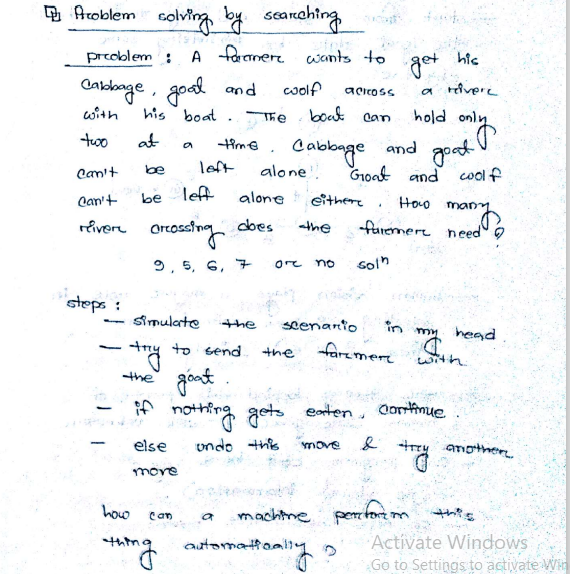 Problem solving by searching
problem : A farmer wants to get his
Cabbage, goat and woolf across a river
with his boat. The boat can hold only
two at a time. Cabbage and goat
can't be left alone. Goat and woolf
can't be left alone either. How many
river crossing does the farmer need?
9, 5, 6, 7 or no solⁿ
steps :
— simulate the scenario in my head.
— try to send the farmer with
the goat.
— if nothing gets eaten, continue.
— else undo this move & try another
move
how can a machine perform this
thing automatically?
Activate Windows
Go to Settings to activate Win